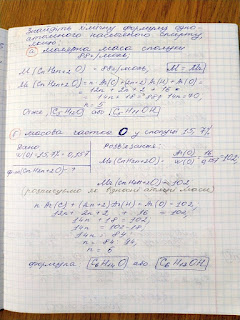 Знайдіть хімічну формулу одно-
атомного насиченого спирту,
якщо:
а) молярна маса сполуки
88 г/моль;
M(CnH2n+2O) = 88 г/моль, M = Mr
Mr(CnH2n+2O) = n Ar(C)+(2n+2)Ar(H)+Ar(O) =
12n + 2n + 2 + 16 =
14n + 18 = 88; 14n = 70,
n = 5
Отже C5H12O або C5H11OH
б) масова частка O у сполуці 15,7%
Дано:
w(O) = 15,7% = 0,157
ф-ла(CnH2n+2O) - ?
Розв'язання:
Mr(CnH2n+2O) = Ar(O)/w(O) = 16/0,157 = 102
Mr(CnH2n+2O) = 102
n Ar(C) + (2n+2)Ar(H) + Ar(O) = 102,
12n + 2n + 2 + 16 = 102,
14n + 18 = 102,
14n = 102-18,
14n = 84,
n = 84:14,
n = 6
формула C6H14O або C6H13OH